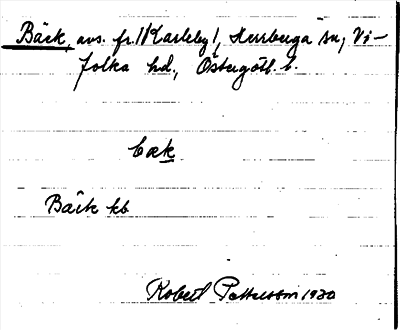 Bäck, avs. fr. 1/1 Karleby 1, Herrberga sn, Vi-
folka hd., Östergötl. l.
bæk
Bäck kb
Robert Pettersson 1930